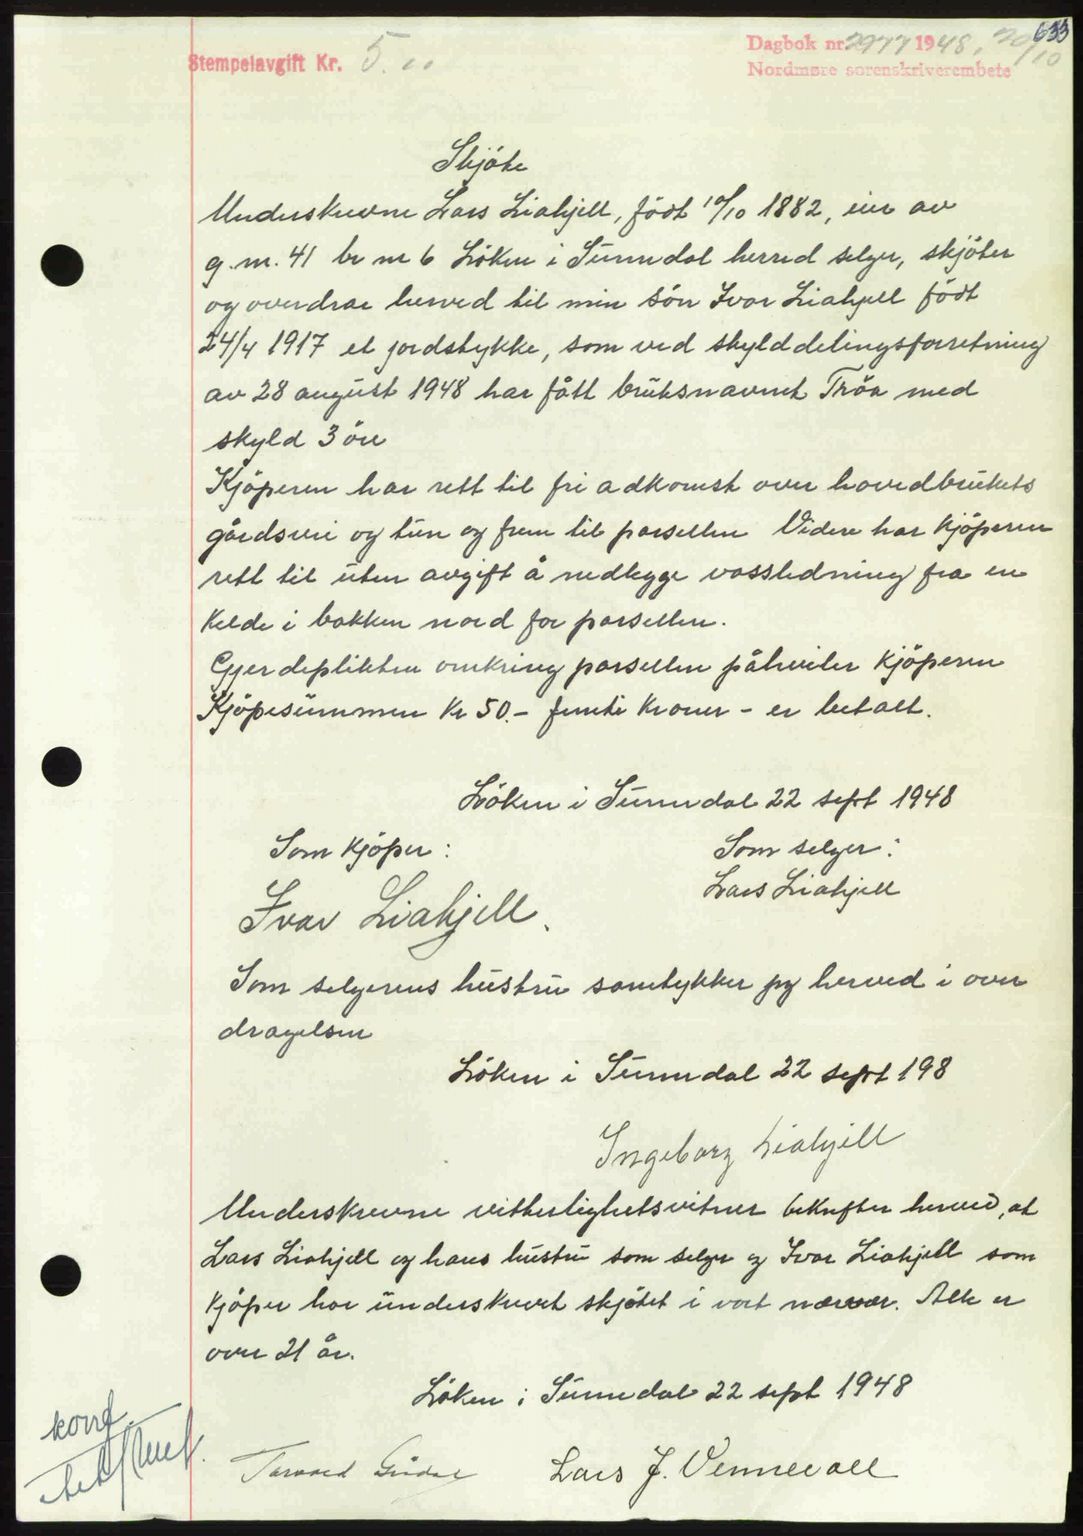 633
Dagbok nr. 2977 1948, 20/10
Stempelavgift Kr. 5.00
Nordmøre sorenskriverembete
Skjöte
Underskrevne Lars Liahjell, födt 10/10 1882, eier av
g.nr. 41 br nr 6 Löken i Sunndal herred selger, skjöter
og overdrar herved til min sön Ivar Liahjell födt
24/4 1917 et jordstykke, som ved skylddelingsforretning
av 28 august 1948 har fått bruksnavnet Tröa med
skyld 3 öre
Kjöperen har rett til fri adkomst over hovedbrukets
gårdsvei og tun og frem til parsellen Videre har kjöperen
rett til uten avgift å nedlegge vassledning fra en
kelde i bakken nord for parsellen.
Gjerdeplikten omkring parsellen påhviler kjöperen
Kjöpesummen kr 50.- femti kroner - er betalt.
Löken i Sunndal 22 sept 1948
Som kjöper:
Som selger:
Lars Liahjell
Ivar Liahjell.
Som selgerens hustru samtykker jeg herved i over
dragelsen
Löken i Sunndal 22 sept 198
Ingeborg Liahjell
Underskrevne vitterlighetsvitner bekrefter herved, at
Lars Liahjell og hans hustru som selger og Ivar Liahjell som
kjöper har underskrevet skjötet i vort nærvær. Alle er
over 21 år.
Löken i Sunndal 22 sept 1948
konf.
Lars J. Vennevall